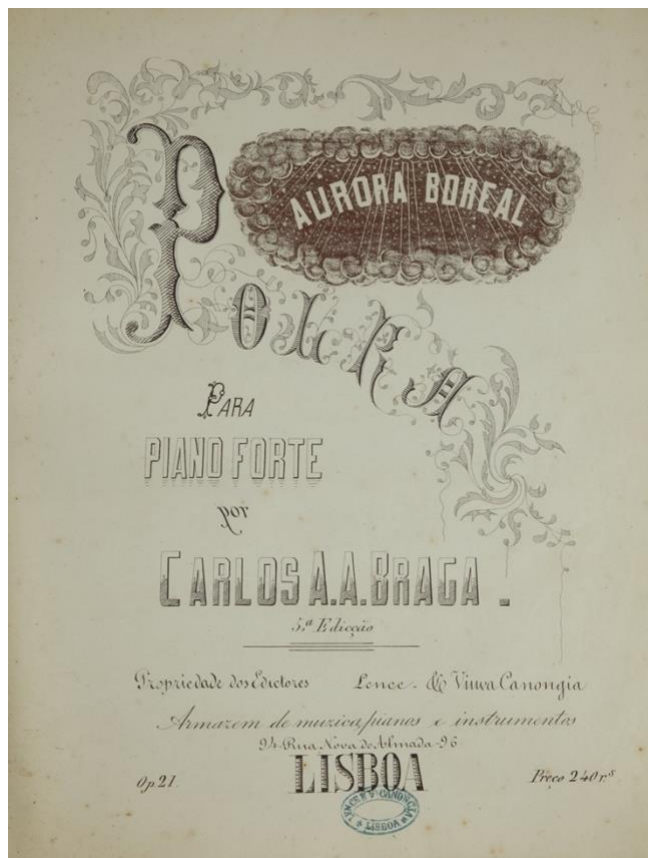 AURORA BOREAL
POLKA
PARA
PIANO FORTE
por
CARLOS A. A. BRAGA.
5.ª Edicção
Propriedade dos Edictores Lence & Viuva Canongia
Armazem de muzica, pianos e instrumentos
94-Rua Nova do Almada-96
LISBOA
Op. 21. Preço 240 r.s
LENCE & V. CANONGIA
LISBOA